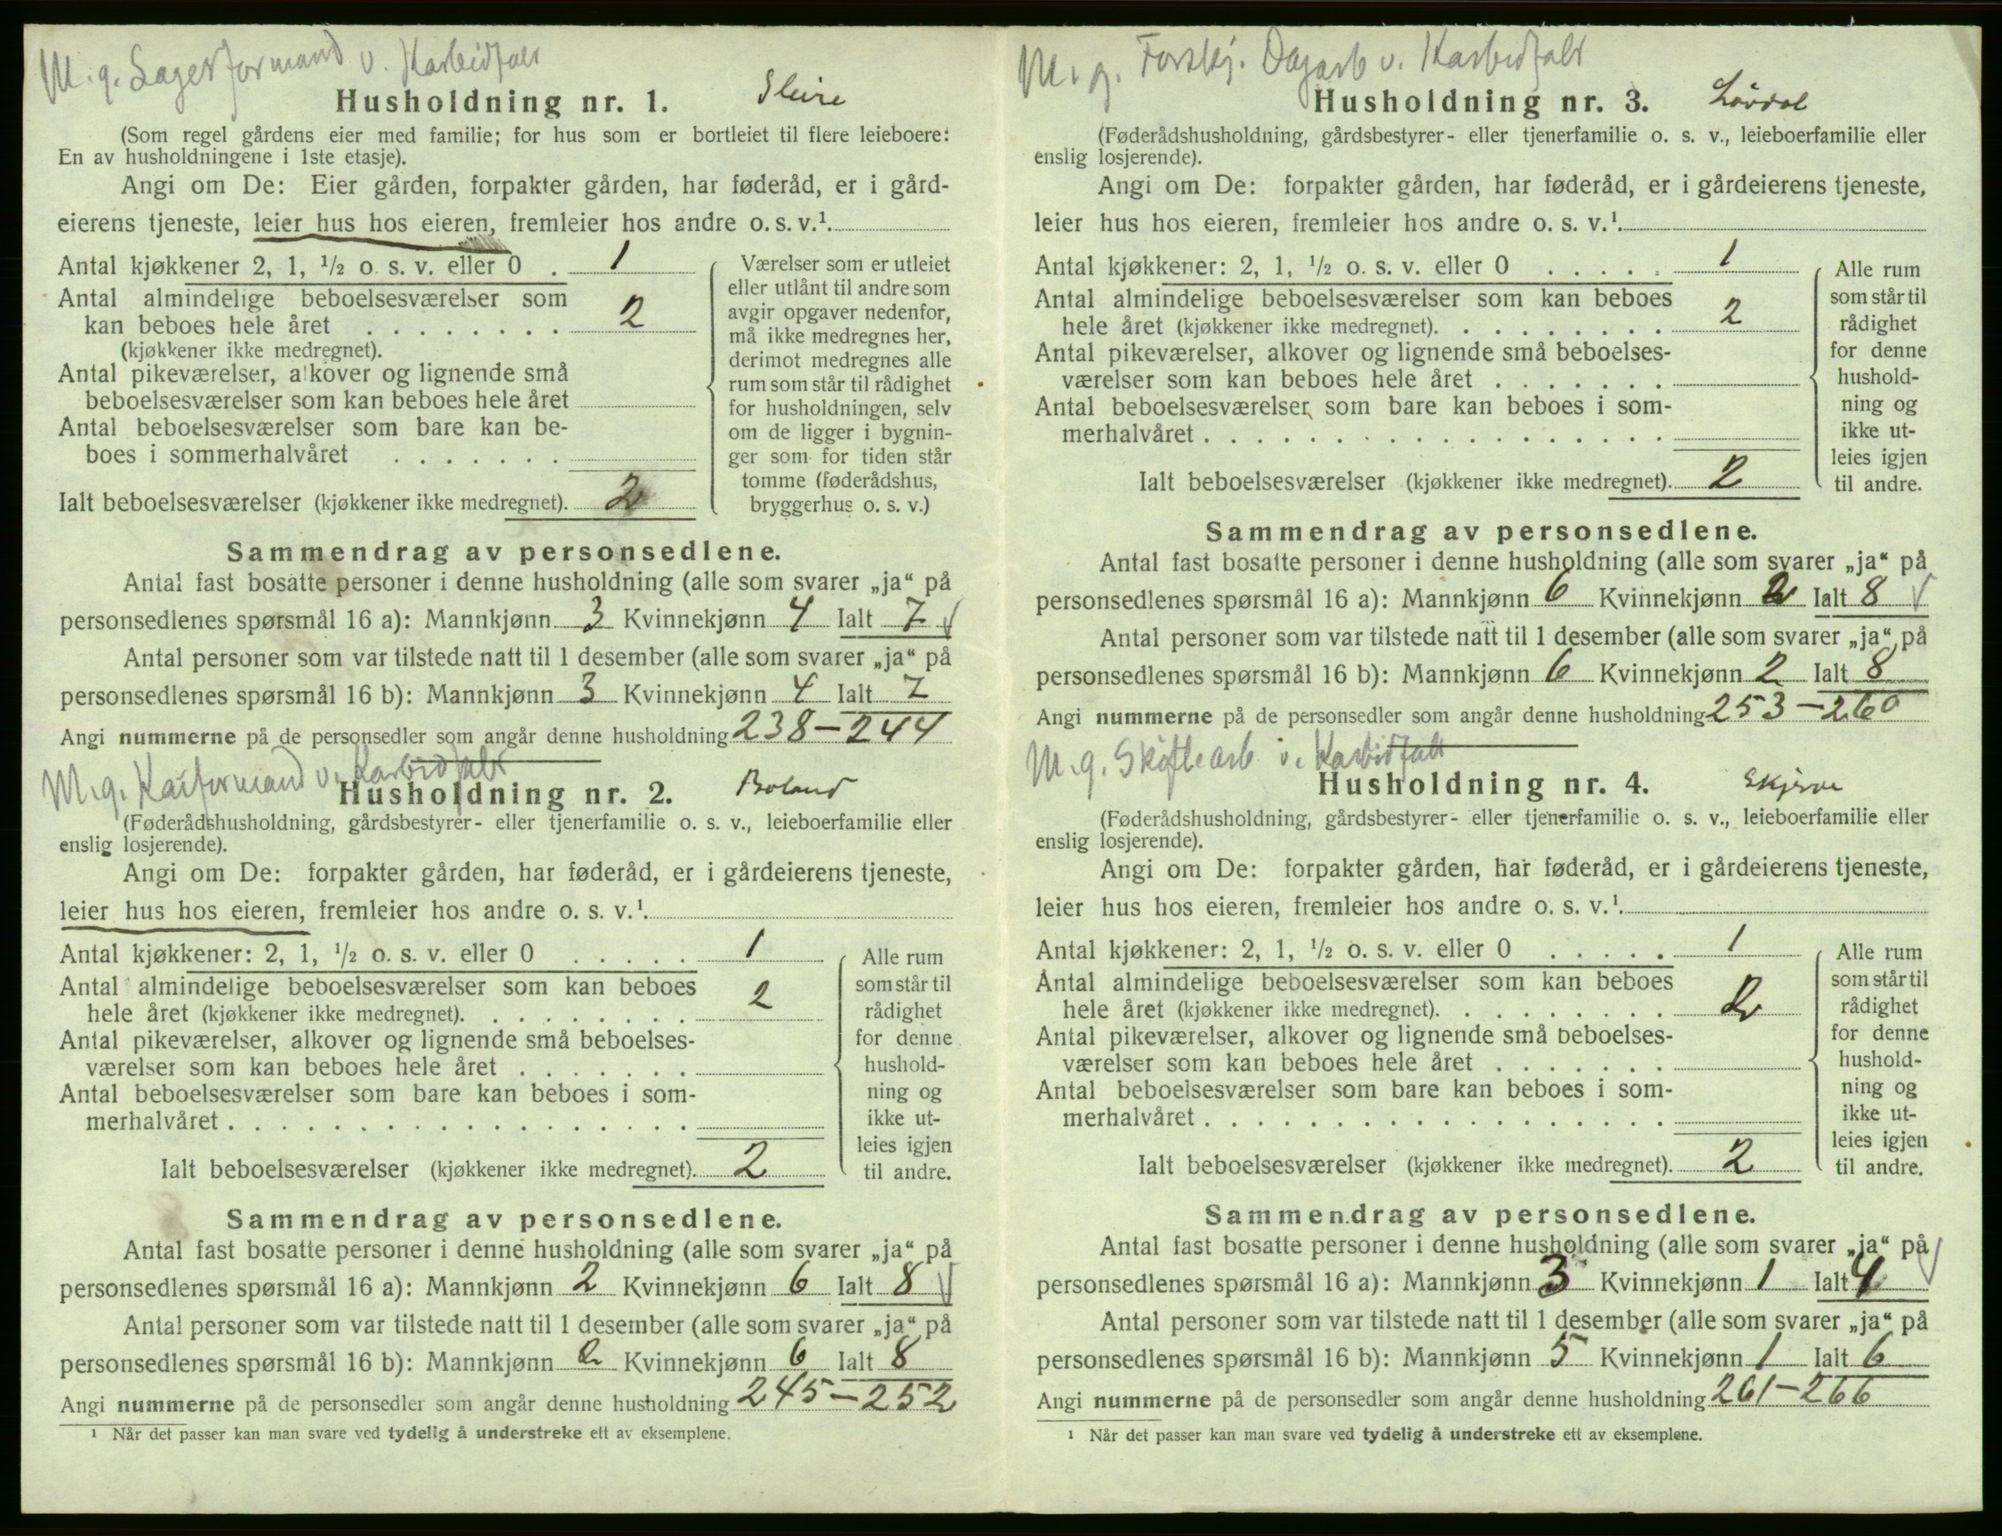 M. g. Lagerformand v. Karbidfabr
Husholdning nr. 1. Sleire
(Som regel gårdens eier med familie; for hus som er bortleiet til flere leieboere:
En av husholdningene i 1ste etasje).
Angi om De: Eier gården, forpakter gården, har føderåd, er i gård-
eierens tjeneste, leier hus hos eieren, fremleier hos andre o. s. v.¹.
Antal kjøkkener 2, 1, ½ o. s. v. eller 0 . 1
Antal almindelige beboelsesværelser som
kan beboes hele året . . . . . . . . 2
(kjøkkener ikke medregnet).
Antal pikeværelser, alkover og lignende små
beboelsesværelser som kan beboes hele året
Antal beboelsesværelser som bare kan be-
boes i sommerhalvåret . . . . . . .
Ialt beboelsesværelser (kjøkkener ikke medregnet). 2
Værelser som er utleiet
eller utlånt til andre som
avgir opgaver nedenfor,
må ikke medregnes her,
derimot medregnes alle
rum som står til rådighet
for husholdningen, selv
om de ligger i bygnin-
ger som for tiden står
tomme (føderådshus,
bryggerhus o. s. v.)
Sammendrag av personsedlene.
Antal fast bosatte personer i denne husholdning (alle som svarer „ja“ på
personsedlenes spørsmål 16 a): Mannkjønn 3 Kvinnekjønn 4 Ialt 7 √
Antal personer som var tilstede natt til 1 desember (alle som svarer „ja“ på
personsedlenes spørsmål 16 b): Mannkjønn 3 Kvinnekjønn 4 Ialt 7
Angi nummerne på de personsedler som angår denne husholdning 238-244
M. g. Kaiformand v. Karbidfabr
Husholdning nr. 2. Boland
(Føderådshusholdning, gårdsbestyrer- eller tjenerfamilie o. s. v., leieboerfamilie eller
enslig losjerende).
Angi om De: forpakter gården, har føderåd, er i gårdeierens tjeneste,
leier hus hos eieren, fremleier hos andre o. s. v.¹.
Antal kjøkkener: 2, 1, ½ o. s. v. eller 0 . . . . . 1
Antal almindelige beboelsesværelser som kan beboes
hele året (kjøkkener ikke medregnet). . . . . . . . . 2
Antal pikeværelser, alkover og lignende små beboelses-
værelser som kan beboes hele året . . . . . . .
Antal beboelsesværelser som bare kan beboes i som-
merhalvåret . . . . . . . . . . . . . . . . . .
Ialt beboelsesværelser (kjøkkener ikke medregnet). 2
Alle rum
som står til
rådighet
for denne
hushold-
ning og
ikke ut-
leies igjen
til andre.
Sammendrag av personsedlene.
Antal fast bosatte personer i denne husholdning (alle som svarer „ja“ på
personsedlenes spørsmål 16 a): Mannkjønn 2 Kvinnekjønn 6 Ialt 8 √
Antal personer som var tilstede natt til 1 desember (alle som svarer „ja“ på
personsedlenes spørsmål 16 b): Mannkjønn 2 Kvinnekjønn 6 Ialt 8
Angi nummerne på de personsedler som angår denne husholdning 245-252
¹ Når det passer kan man svare ved tydelig å understreke ett av eksemplene.
M. g. Forskj. Dagarb v. Karbidfabr
Husholdning nr. 3. Lövdal
(Føderådshusholdning, gårdsbestyrer- eller tjenerfamilie o. s. v., leieboerfamilie eller
enslig losjerende).
Angi om De: forpakter gården, har føderåd, er i gårdeierens tjeneste,
leier hus hos eieren, fremleier hos andre o. s. v.¹.
Antal kjøkkener: 2, 1, ½ o. s. v. eller 0 . . . . . 1
Antal almindelige beboelsesværelser som kan beboes
hele året (kjøkkener ikke medregnet). . . . . . . . . 2
Antal pikeværelser, alkover og lignende små beboelses-
værelser som kan beboes hele året . . . . . . .
Antal beboelsesværelser som bare kan beboes i som-
merhalvåret . . . . . . . . . . . . . . . . . .
Ialt beboelsesværelser (kjøkkener ikke medregnet). 2
Alle rum
som står til
rådighet
for denne
hushold-
ning og
ikke ut-
leies igjen
til andre.
Sammendrag av personsedlene.
Antal fast bosatte personer i denne husholdning (alle som svarer „ja“ på
personsedlenes spørsmål 16 a): Mannkjønn 6 Kvinnekjønn 2 Ialt 8 √
Antal personer som var tilstede natt til 1 desember (alle som svarer „ja“ på
personsedlenes spørsmål 16 b): Mannkjønn 6 Kvinnekjønn 2 Ialt 8
Angi nummerne på de personsedler som angår denne husholdning 253-260
M. g. v. Karbidfabr
Husholdning nr. 4. Skjerve
(Føderådshusholdning, gårdsbestyrer- eller tjenerfamilie o. s. v., leieboerfamilie eller
enslig losjerende).
Angi om De: forpakter gården, har føderåd, er i gårdeierens tjeneste,
leier hus hos eieren, fremleier hos andre o. s. v.¹.
Antal kjøkkener: 2, 1, ½ o. s. v. eller 0 . . . . . 1
Antal almindelige beboelsesværelser som kan beboes
hele året (kjøkkener ikke medregnet). . . . . . . . . 2
Antal pikeværelser, alkover og lignende små beboelses-
værelser som kan beboes hele året . . . . . . .
Antal beboelsesværelser som bare kan beboes i som-
merhalvåret . . . . . . . . . . . . . . . . . .
Ialt beboelsesværelser (kjøkkener ikke medregnet). 2
Alle rum
som står til
rådighet
for denne
hushold-
ning og
ikke ut-
leies igjen
til andre.
Sammendrag av personsedlene.
Antal fast bosatte personer i denne husholdning (alle som svarer „ja“ på
personsedlenes spørsmål 16 a): Mannkjønn 3 Kvinnekjønn 1 Ialt 4 √
Antal personer som var tilstede natt til 1 desember (alle som svarer „ja“ på
personsedlenes spørsmål 16 b): Mannkjønn 5 Kvinnekjønn 1 Ialt 6
Angi nummerne på de personsedler som angår denne husholdning 261-266
¹ Når det passer kan man svare ved tydelig å understreke ett av eksemplene.